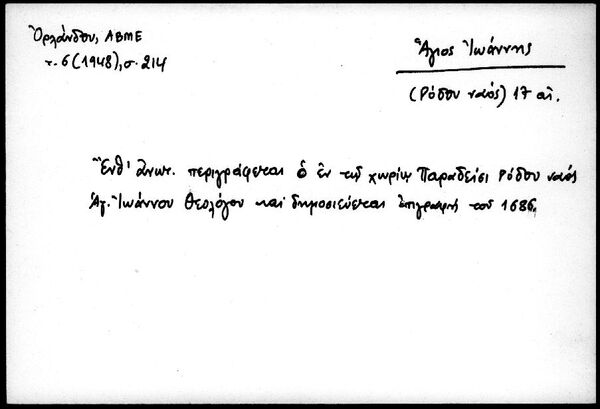 Ὀρλάνδου, ΑΒΜΕ
τ. 6 (1948), σ. 214
Ἅγιος Ἰωάννης
(Ρόδου ναός) 17 αἰ.
Ἔνθ' ἀνωτ. περιγράφεται ὁ ἐν τῷ χωρίῳ Παραδείσι Ρόδου ναός
Ἁγ. Ἰωάννου Θεολόγου καὶ δημοσιεύεται ἐπιγραφὴ τοῦ 1686.